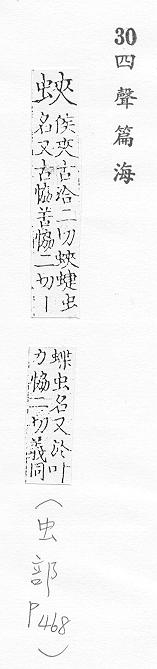 30四聲篇海
蛺
侯夾古洽二切蛺蜨虫
名又古恊苦恊二切丨
蝶虫名又叶
力恊二切義同
(虫部P468)